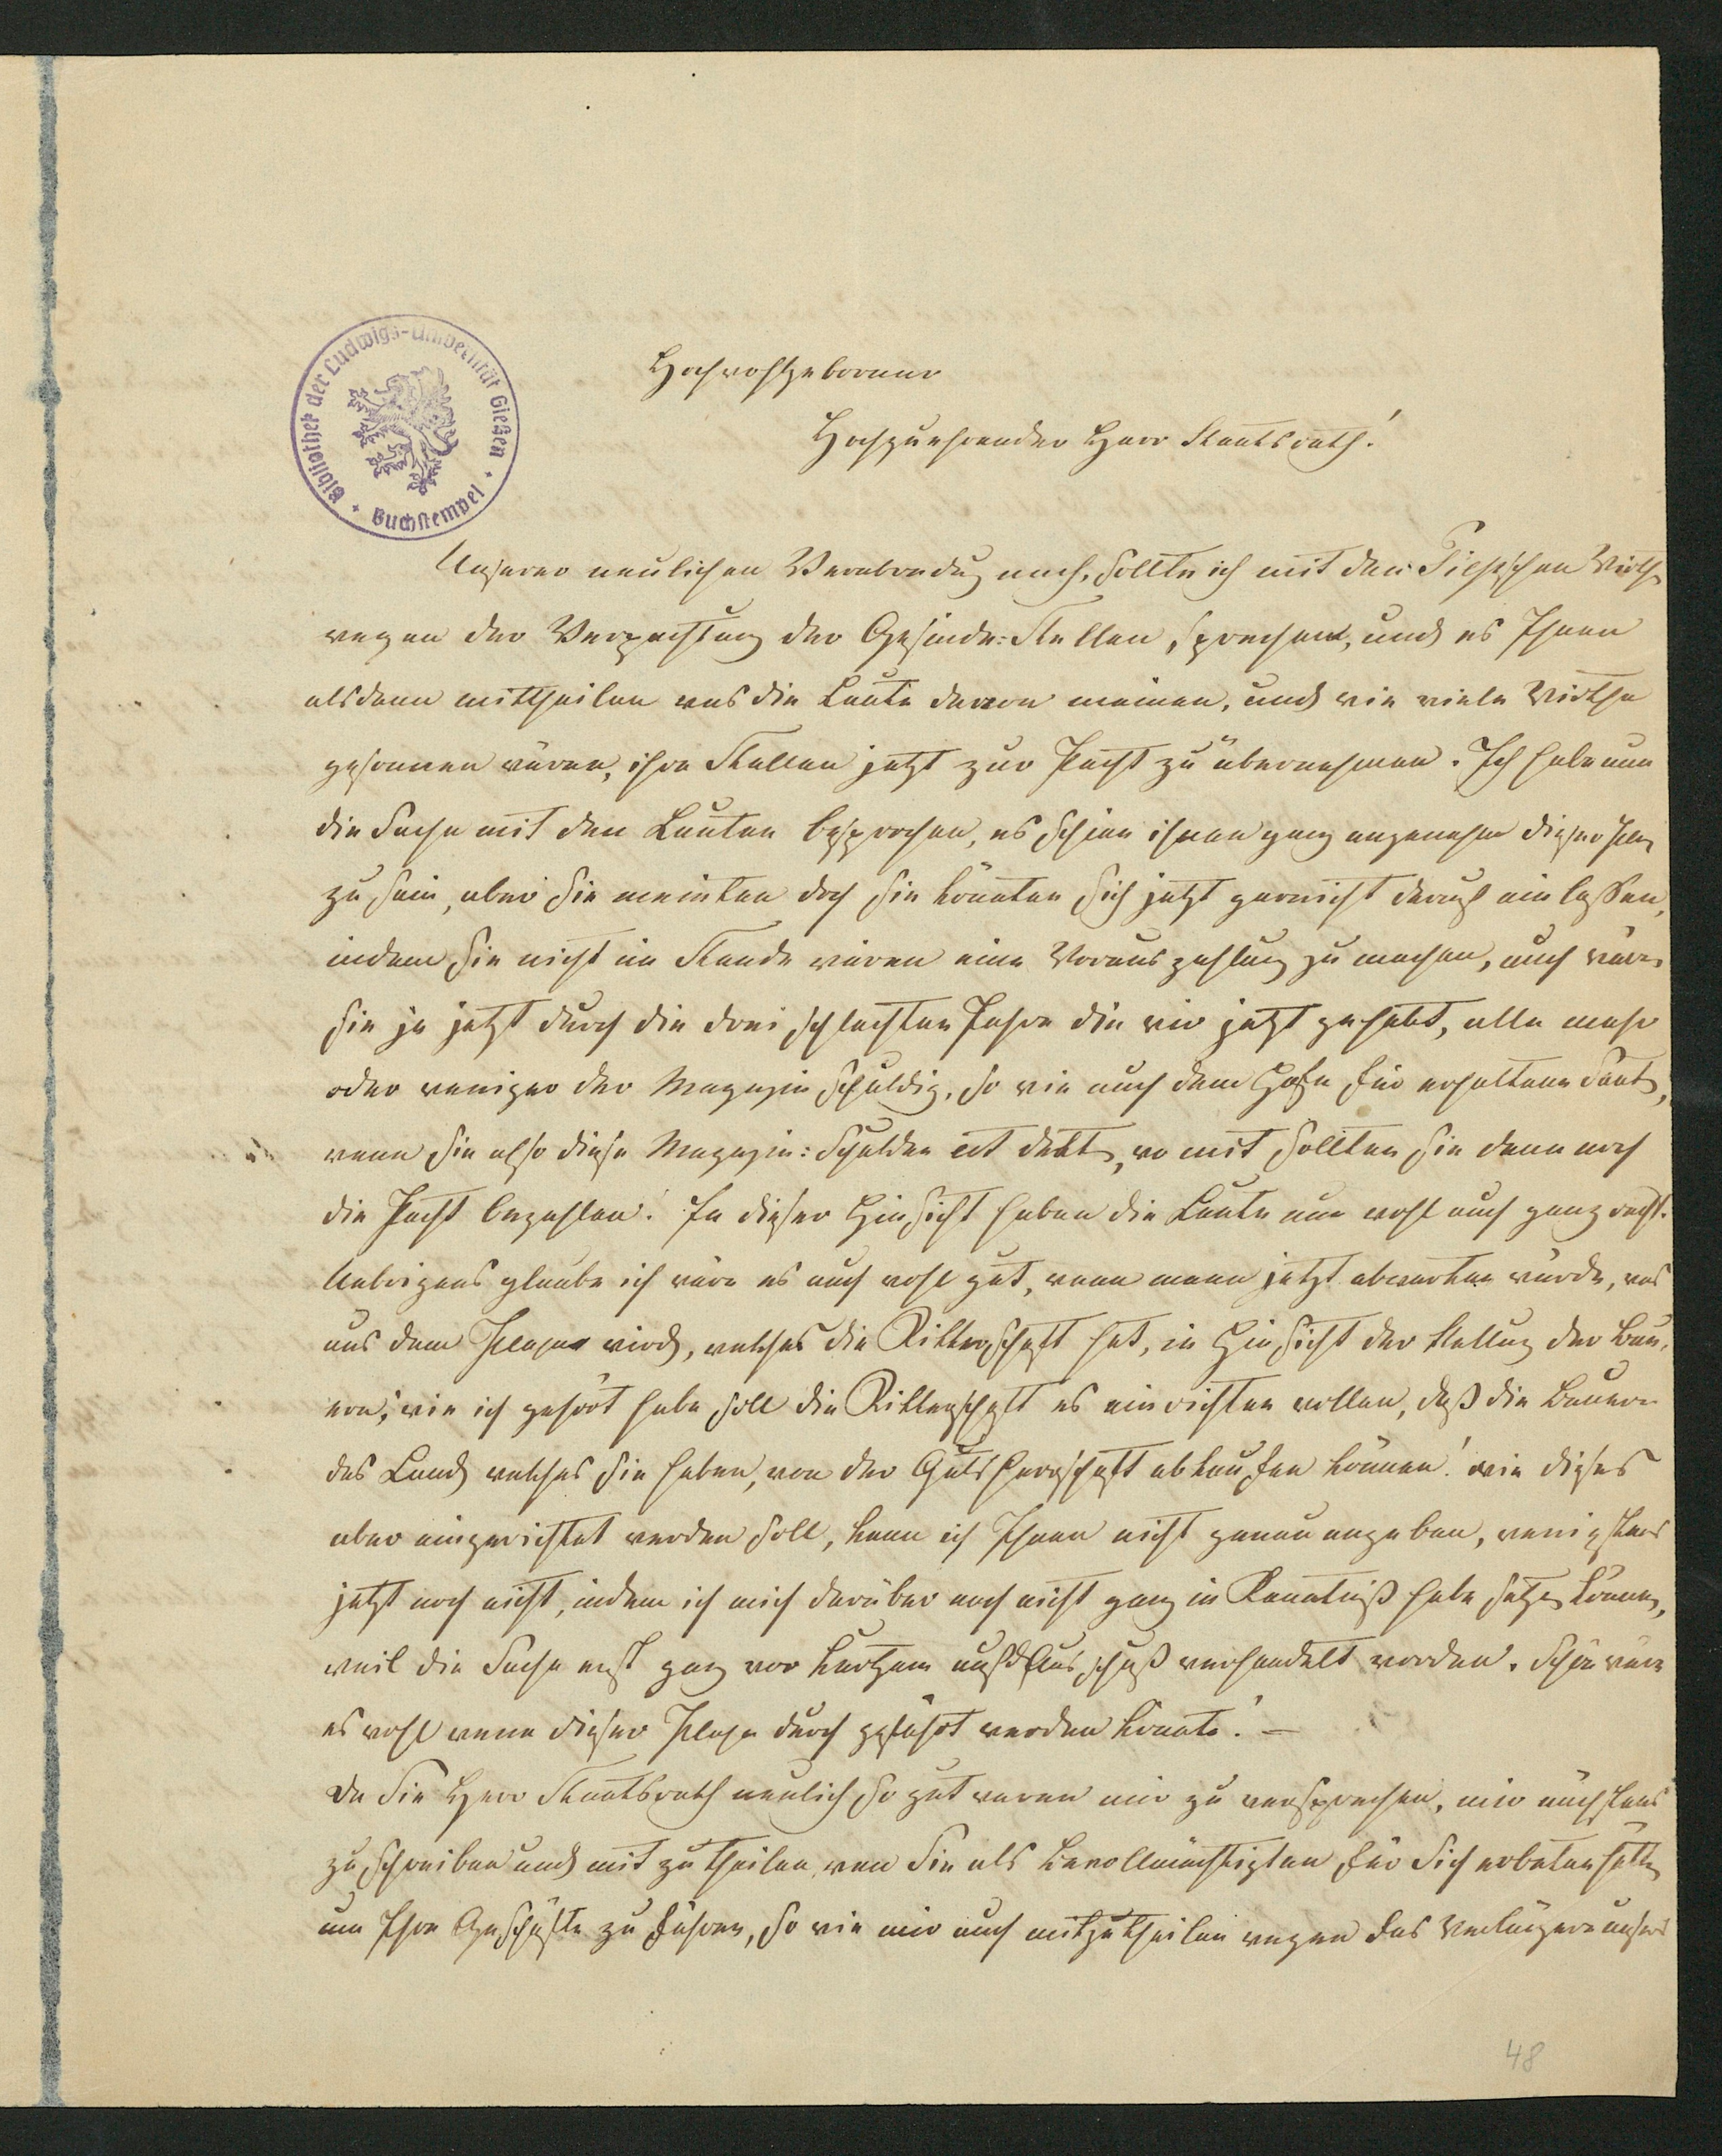 Bibliothek der Ludwigs-Universität Gießen
Buchstempel
Hochwohlgeborner
Hochzuehrender Herr Staatsrath!
Unserer neulichen Verabredug nach, sollte ich mit den Wirth
wegen der Verpachtung der Gesinde-Stellen, sprechen, und es Ihnen
alsdann mittheilen was die Leute davon meinen, und wie viele Wirthe
gesonnen wären, ihre Stellen jetzt zur Pacht zu übernehmen. Ich habe nun
die Sache mit den Leuten besprochen, es schien ihnen ganz angenehm dieser Plan
zu sein, aber sie meinten doch sie könnten sich jetzt garnicht darauf ein lassen,
indem sie nicht im Stande wären eine Vorauszahlung zu machen, auch wären
sie ja jetzt durch die drei schlechten Jahre die wir jetzt gehabt, alle mehr
oder weniger der Magazin schuldig, so wie auch dem Hofe für erhaltene Saat,
wenn sie also diese Magazin-Schulden, womit sollten sie dann noch
die Pacht bezahlen! In dieser Hinsicht haben die Leute nun wohl auch ganz recht.
Uebrigens glaube ich wäre es auch wohl gut, wenn mann jetzt abwarten würde, was
aus dem Plane wird, welches die Ritterschaft hat, in Hinsicht der Stellug der Bau,
ern, wie ich gehört habe soll die Ritterschaft es einrichten wollen, daß die Bauern
das Land welches sie haben, von der Gutsherrschaft abkaufen können! wie dieses
aber eingerichtet werden soll, kann ich Ihnen nicht genau angeben, wenigstens
jetzt noch nicht, indem ich mich darüber noch nicht ganz in Kenntniß habe setzen können,
weil die Sache erst ganz vor kurzem auf d Ausschuß verhandelt worden. Schön wäre
es wohl wenn dieser Plan durch geführt werden könnte! —
Da Sie Herr Staatsrath neulich so gut waren mir zu versprechen, mir nächstens
zu schreiben und mit zu theilen, wen Sie als Bevollmächtigten für Sich erbeten hätten
um Ihre Geschäfte zu führen, so wie mir auch mitzutheilen wegen des Verlängern unsers
48